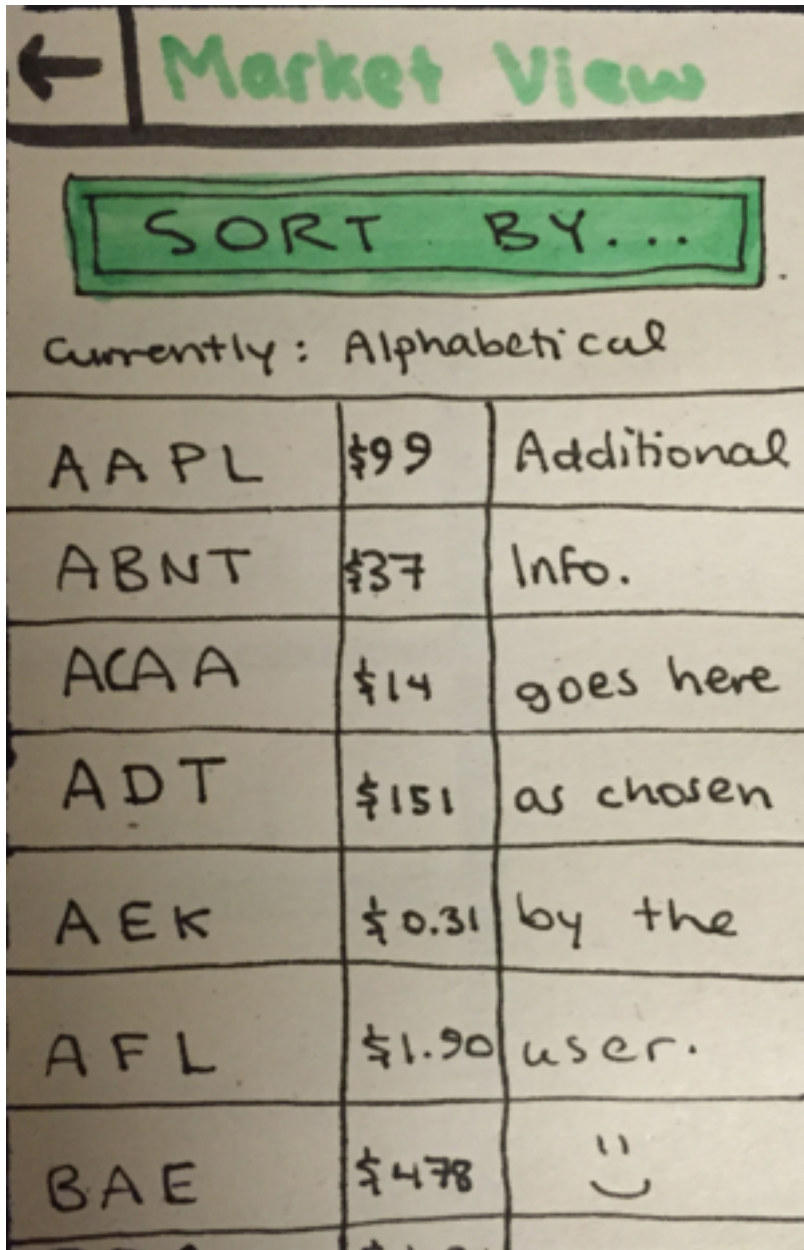 ← Market View
SORT BY...
Currently: Alphabetical
AAPL $99 Additional
ABNT $37 Info.
ACAA $14 goes here
ADT $151 as chosen
AEK $0.31 by the
AFL $1.90 user.
BAE $478